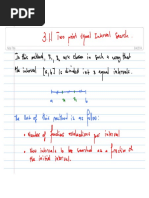 3.11 Two point equal Interval Search.
In this method, x₁, x₂ are chosen in such a way that
the interval [a, b] is divided into 3 equal intervals.
The cost of this method is as follows:
• Number of function evaluations per interval
• New intervals to be searched as a fraction of
the initial interval.